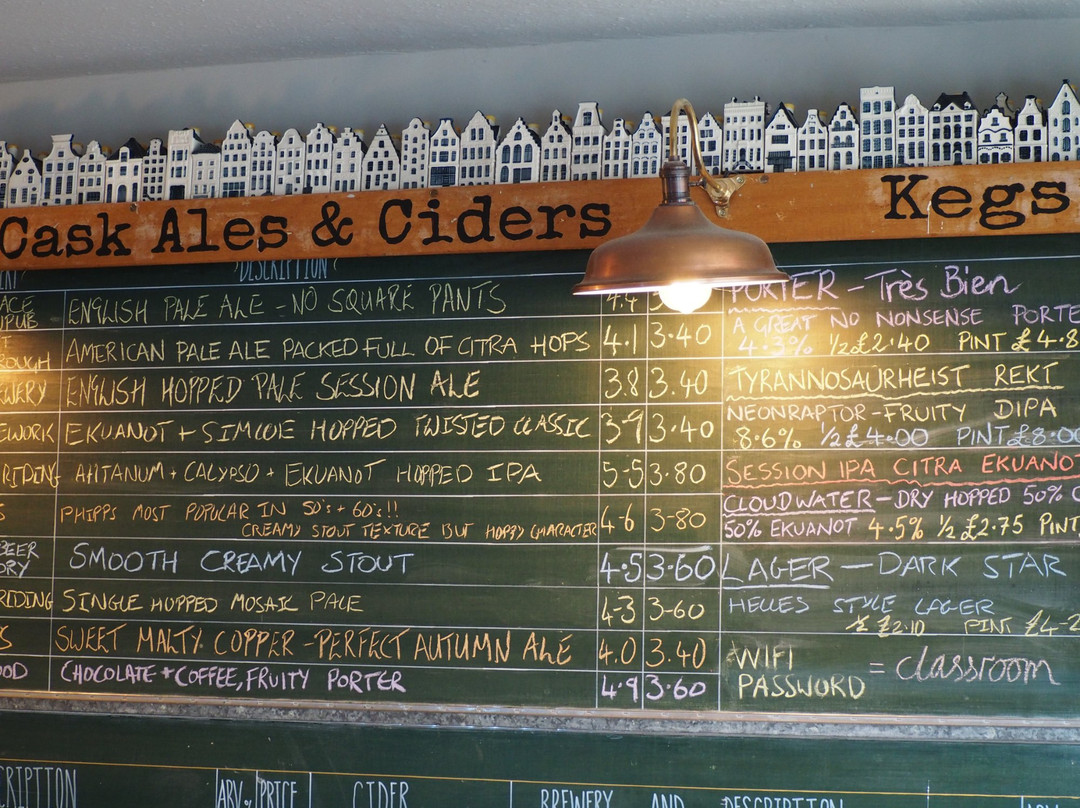 Cask Ales & Ciders
Kegs
DESCRIPTION
ENGLISH PALE ALE - NO SQUARE PANTS 4.4
AMERICAN PALE ALE PACKED FULL OF CITRA HOPS 4.1 3.40
ENGLISH HOPPED PALE SESSION ALE 3.8 3.40
EKUANOT + SIMCOE HOPPED TWISTED CLASSIC 3.9 3.40
RIDING AHTANUM + CALYPSO + EKUANOT HOPPED IPA 5-5 3.80
PHIPPS MOST POPULAR IN 50's + 60's!!
CREAMY STOUT TEXTURE BUT HOPPY CHARACTER 4-6 3-80
BEER SMOOTH CREAMY STOUT 4.5 3.60
RIDING SINGLE HOPPED MOSAIC PALE 4-3 3-60
SWEET MALTY COPPER - PERFECT AUTUMN ALE 4.0 3.40
CHOCOLATE + COFFEE, FRUITY PORTER 4.9 3.60
PORTER - Très Bien
A GREAT NO NONSENSE PORTE
4.3% ½£2.40 PINT £4.8
TYRANNOSAURHEIST REKT
NEONRAPTOR - FRUITY DIPA
8.6% ½£4.00 PINT £8.00
SESSION IPA CITRA EKUANOT
CLOUDWATER - DRY HOPPED 50% C
50% EKUANOT 4.5% ½£2.75 PINT
LAGER - DARK STAR
HELLES STYLE LAGER
½ £2.10 PINT £4-2
WIFI
PASSWORD = classroom
CRIPTION ABV PRICE CIDER BREWERY AND DESCRIPTION